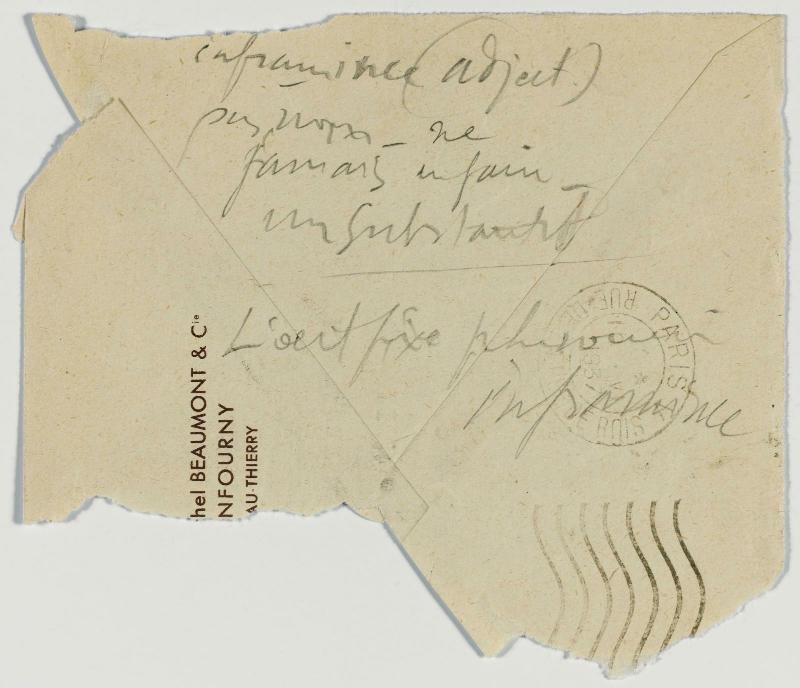 inframince (adject.)
pas nom – ne
jamais en faire
un substantif
L'œil fixe phénomène
inframince
hel BEAUMONT & Cie
NFOURNY
AU-THIERRY
PARIS
RUE